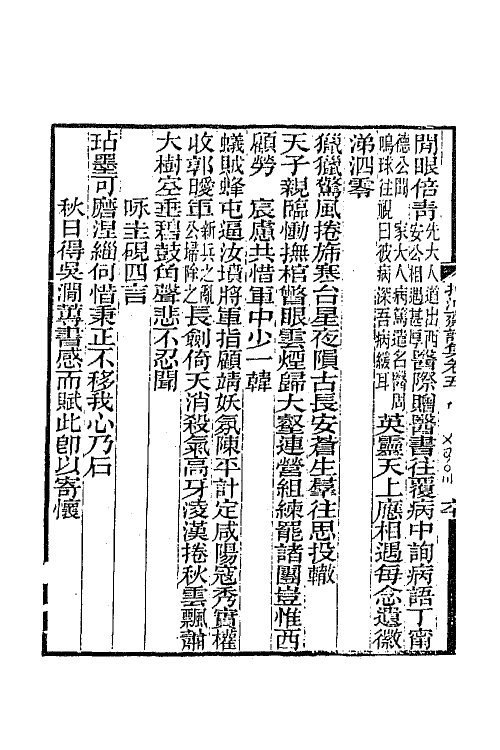 閒眼倍青先大人道出西安公相遇甚厚醫際贈醫書往覆病中詢病語丁甯
德公聞 家大人病篤遣名醫周鳴球往視曰彼病深吾病緩耳英靈天上應相遇每念遺徽
涕泗零
獵獵驚風捲旆寒台星夜隕古長安蒼生羣往思投轍
天子親臨慟撫棺瞥眼雲煙歸大壑連營組練罷諸團豈惟西
顧勞 宸慮共惜軍中少一韓
蟻賊蜂屯逼汝墳將軍指顧靖妖氛陳平計定咸陽寇秀實權
收郭曖軍新兵之亂公掃除之長劍倚天消殺氣高牙淩漢捲秋雲飄蕭
大樹空垂碧鼓角聲悲不忍聞
咏圭硯四言
玷墨可磨涅緇何惜秉正不移我心乃石
秋日得吳澗蓴書感而賦此卽以寄懷